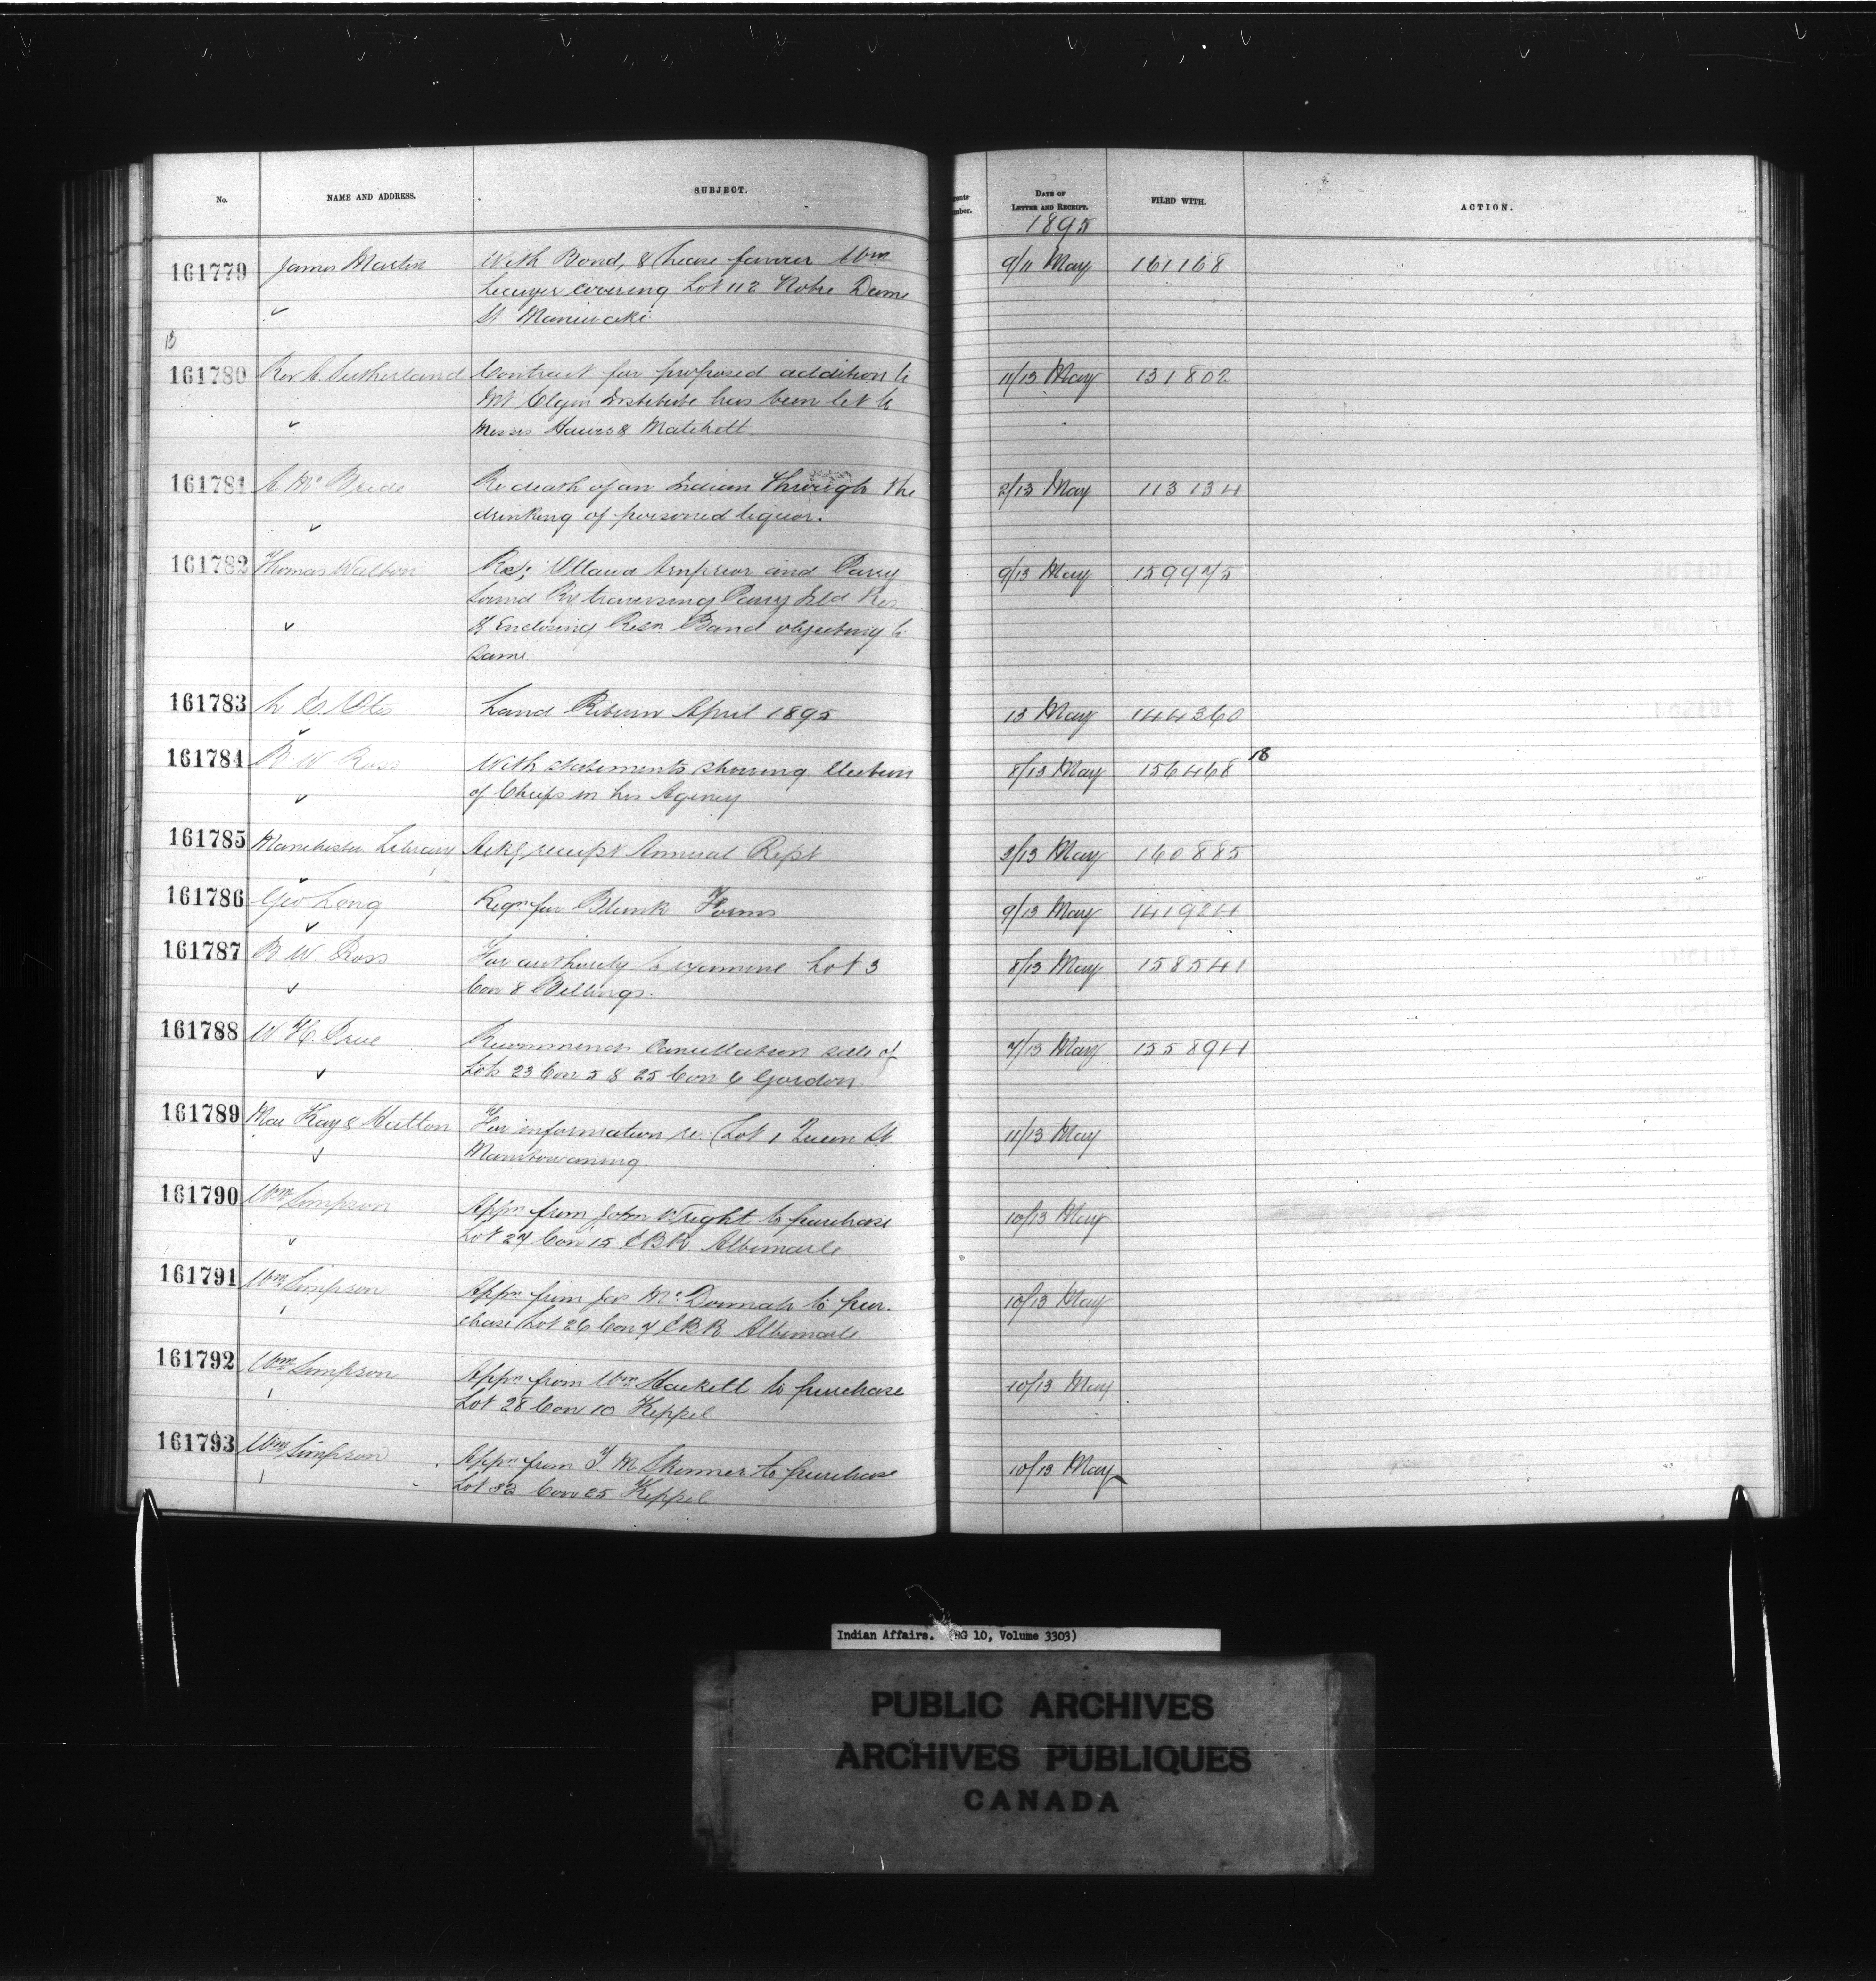 No.
NAME AND ADDRESS.
SUBJECT.
DATE OF
LETTER AND RECEIPT.
FILED WITH.
ACTION.
1895
161779 James Martin With Bond, & lease favour Wm 9/11 May 161168
Lecuyer covering Lot 112 Notre Dame
St Maniwaki
13
161780 Rev A. Sutherland Contract for proposed addition to 11/13 May 131802
Mt Elgin Institute has been let to
Messrs & Matchett
161781 A. McBride Re death of an Indian through the 2/13 May 113134
drinking of poisoned liquor.
161782 Thomas Walton Re; Ottawa Arnprior and Parry 9/13 May 159975
Sound Ry traversing Parry Isld Res.
& Enclosing Resn. Band objecting to
same
161783 Land Return April 1895 13 May 144360
161784 B W Ross With statements showing Election 8/13 May 156468 18
of Chiefs in his Agency
161785 Manchester Library Ackg receipt Annual Rept 3/13 May 160885
161786 Geo Long Reqn for Blank Forms 9/13 May 141924
161787 B W Ross For authority to examine Lot 3 8/13 May 158541
Con 8 Billings.
161788 W H Price Recommends Cancellation sale of 7/13 May 155894
Lots 23 Con 5 & 25 Con 6 Gordon
161789 Mac Kay & Hatton For information re. Lot 1 Queen St. 11/13 May
Manitowaning
161790 Wm Simpson Appn from John Wright to purchase 10/13 May
Lot 27 Con 15 EBR. Albemarle
161791 Wm Simpson Appn from Jas Mc to pur- 10/13 May
chase Lot 26 Con 7 EBR Albemarle
161792 Wm Simpson Appn from Wm Hackett to purchase 10/13 May
Lot 28 Con 10 Keppel
161793 Wm Simpson Appn from T. M. Skinner to purchase 10/13 May
Lot 32 Con 25 Keppel
Indian Affairs. (RG 10, Volume 3303)
PUBLIC ARCHIVES
ARCHIVES PUBLIQUES
CANADA